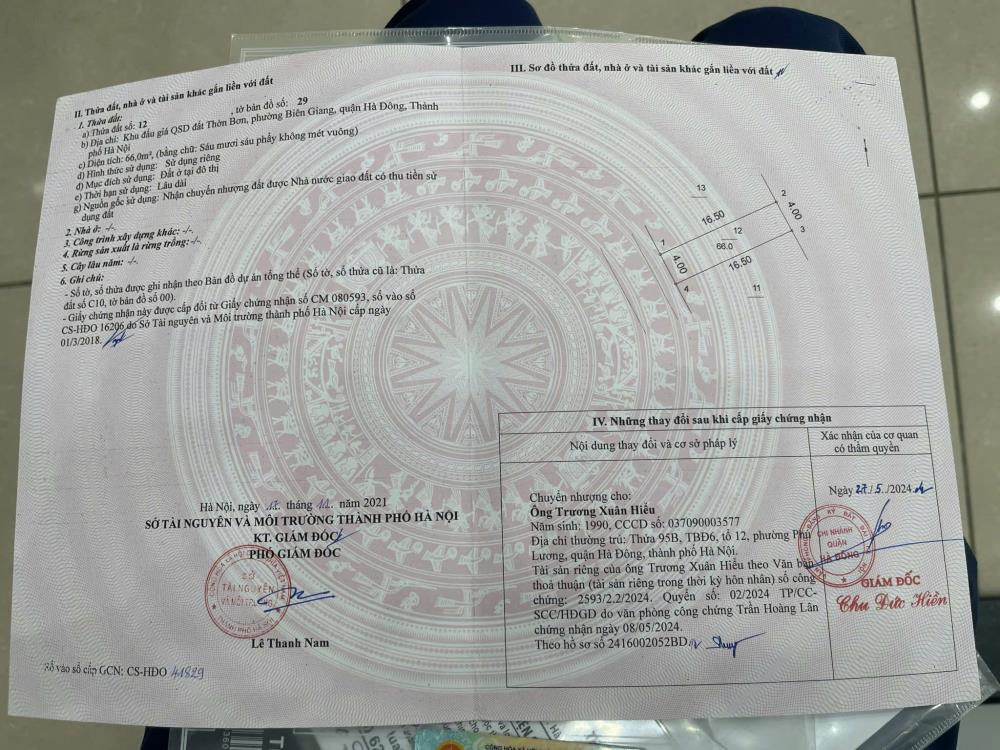 II. Thửa đất, nhà ở và tài sản khác gắn liền với đất
1. Thửa đất:
a) Thửa đất số: 12 , tờ bản đồ số: 29
b) Địa chỉ: Khu đấu giá QSD đất Thờn Bơn, phường Biên Giang, quận Hà Đông, Thành
phố Hà Nội
c) Diện tích: 66,0m², (bằng chữ: Sáu mươi sáu phẩy không mét vuông)
d) Hình thức sử dụng: Sử dụng riêng
đ) Mục đích sử dụng: Đất ở tại đô thị
e) Thời hạn sử dụng: Lâu dài
g) Nguồn gốc sử dụng: Nhận chuyển nhượng đất được Nhà nước giao đất có thu tiền sử
dụng đất
2. Nhà ở: -/-.
3. Công trình xây dựng khác: -/-.
4. Rừng sản xuất là rừng trồng: -/-.
5. Cây lâu năm: -/-.
6. Ghi chú:
- Số tờ, số thửa được ghi nhận theo Bản đồ dự án tổng thể (Số tờ, số thửa cũ là: Thửa
đất số C10, tờ bản đồ số 00).
- Giấy chứng nhận này được cấp đổi từ Giấy chứng nhận số CM 080593, số vào sổ
CS-HĐO 16206 do Sở Tài nguyên và Môi trường thành phố Hà Nội cấp ngày
01/3/2018.
Hà Nội, ngày 12 tháng 11 năm 2021
SỞ TÀI NGUYÊN VÀ MÔI TRƯỜNG THÀNH PHỐ HÀ NỘI
KT. GIÁM ĐỐC
PHÓ GIÁM ĐỐC
SỞ
TÀI NGUYÊN
VÀ MÔI TRƯỜNG
THÀNH PHỐ HÀ NỘI
Lê Thanh Nam
Số vào sổ cấp GCN: CS-HĐO 41829
III. Sơ đồ thửa đất, nhà ở và tài sản khác gắn liền với đất
13
2
16.50
4.00
12
1
66.0
3
4.00
16.50
4
11
IV. Những thay đổi sau khi cấp giấy chứng nhận
Nội dung thay đổi và cơ sở pháp lý
Xác nhận của cơ quan
có thẩm quyền
Chuyển nhượng cho:
Ông Trương Xuân Hiếu
Năm sinh: 1990, CCCD số: 037090003577
Địa chỉ thường trú: Thửa 95B, TBĐ6, tổ 12, phường Phú
Lương, quận Hà Đông, thành phố Hà Nội.
Tài sản riêng của ông Trương Xuân Hiếu theo Văn bản
thoả thuận (tài sản riêng trong thời kỳ hôn nhân) số công
chứng: 2593/2.2/2024. Quyển số: 02/2024 TP/CC-
SCC/HĐGD do văn phòng công chứng Trần Hoàng Lân
chứng nhận ngày 08/05/2024.
Theo hồ sơ số 2416002052BD.
Ngày 27/5/2024
CHI NHÁNH
QUẬN
HÀ ĐÔNG
GIÁM ĐỐC
Chu Đức Hiền